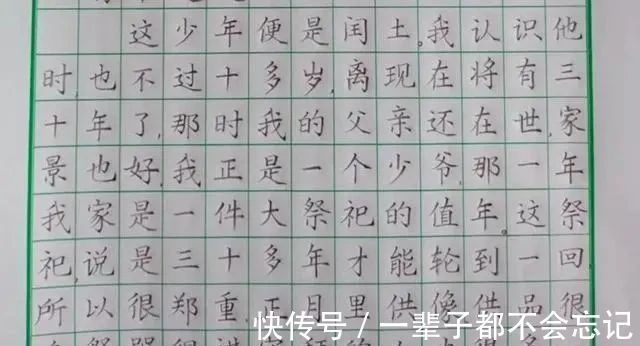 这少年便是闰土。我认识他
时,也不过十多岁,离现在将有三
十年了,那时我的父亲还在世,家
景也好,我正是一个少爷,那一年
我家是一件大祭祀的值年。这祭
祀,说是三十多年才能轮到一回,
所以很郑重,正月里供像,供品很
快传号/一辈子都不会忘记